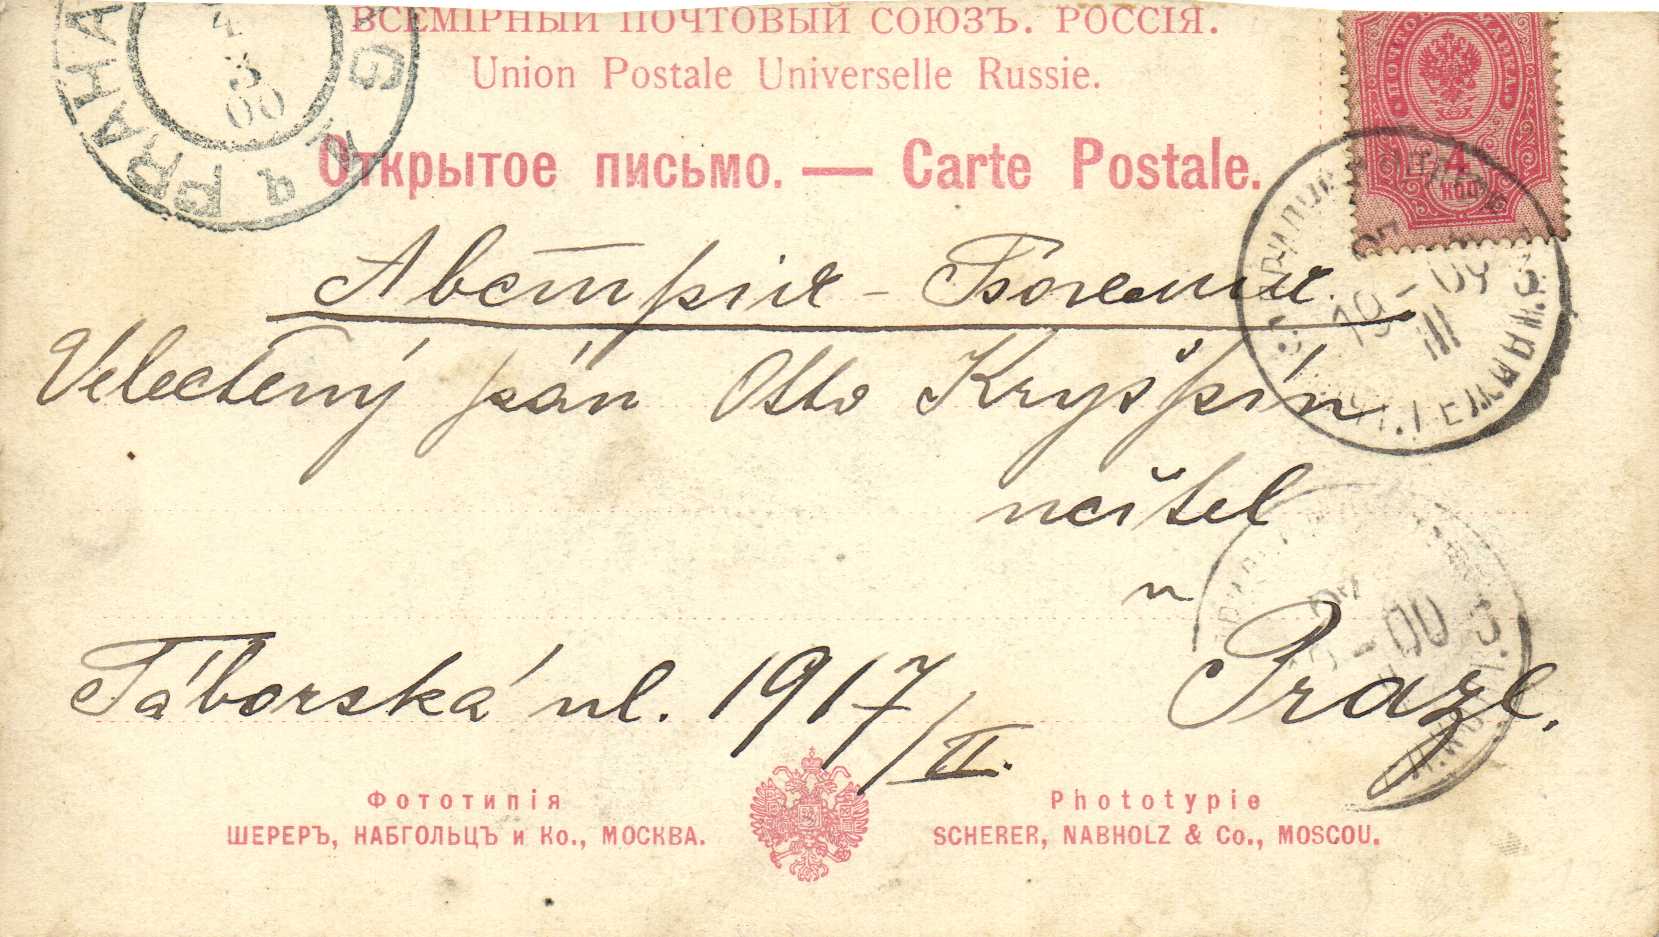 ВСЕМІРНЫЙ ПОЧТОВЫЙ СОЮЗЪ. РОССІЯ.
Union Postale Universelle Russie.
Открытое письмо. — Carte Postale.
PRAHA
3
00
4
КОП
Австрія - Богемия.
Velectený pán Otto Kryšpín
učitel
v
Praze.
Táborská ul. 1917/II.
19 - 00
III
Фототипія
ШЕРЕРЪ, НАБГОЛЬЦЪ и Ко., МОСКВА.
Phototypie
SCHERER, NABHOLZ & Co., MOSCOU.